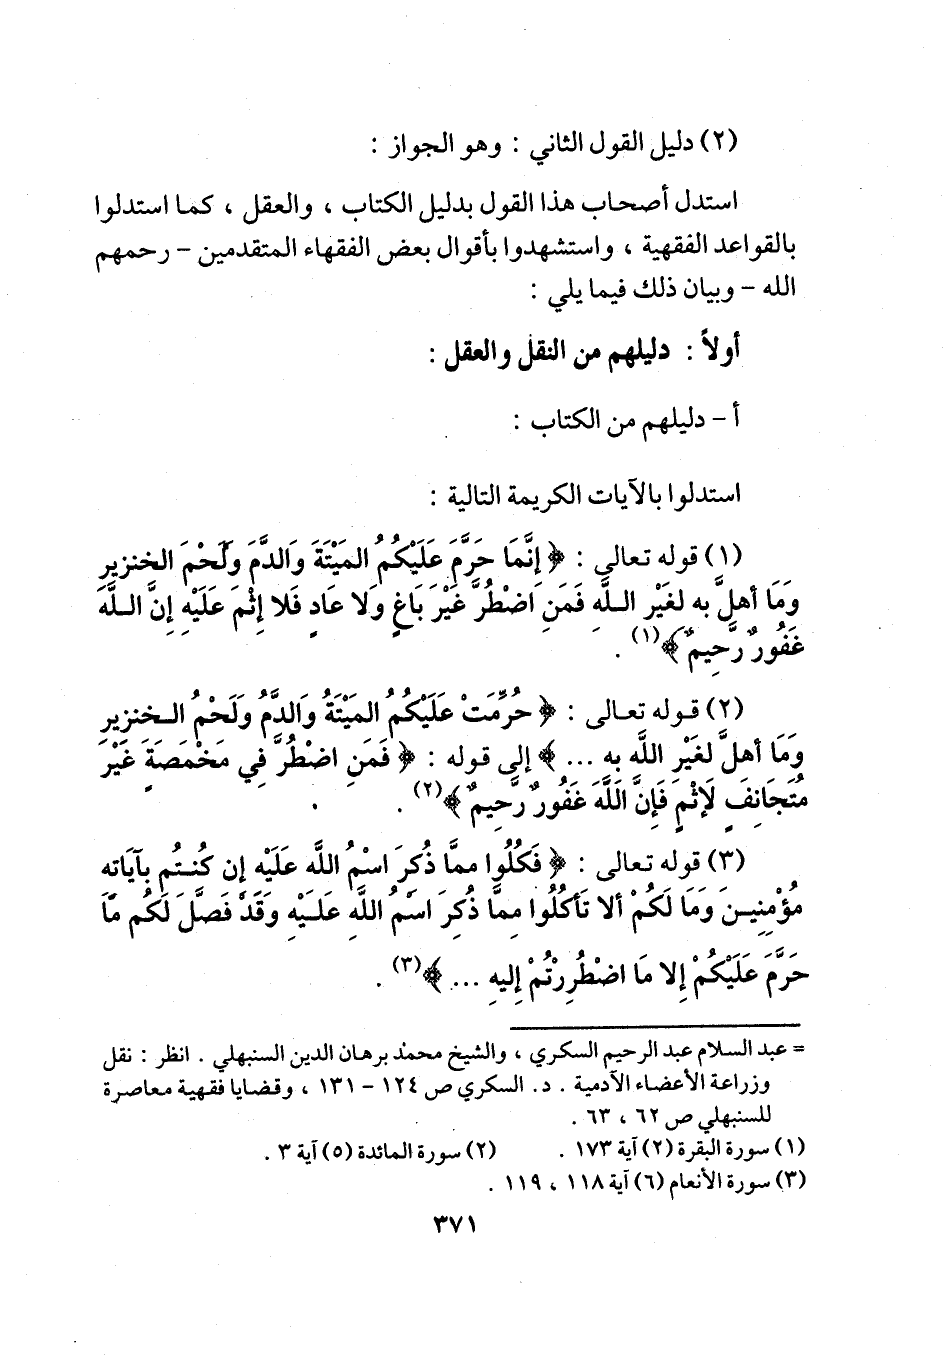 (٢) دليل القول الثاني : وهو الجواز :
استدل أصحاب هذا القول بدليل الكتاب ، والعقل ، كما استدلوا
بالقواعد الفقهية ، واستشهدوا بأقوال بعض الفقهاء المتقدمين – رحمهم
الله – وبيان ذلك فيما يلي :
أولاً : دليلهم من النقل والعقل :
أ – دليلهم من الكتاب :
استدلوا بالآيات الكريمة التالية :
(١) قوله تعالى : ﴿ إِنَّمَا حَرَّمَ عَلَيْكُمُ المَيْتَةَ وَالدَّمَ وَلَحْمَ الخنزيرِ
وَمَا أهلَّ به لغَيْرِ اللَّهِ فَمَنِ اضْطُرَّ غَيْرَ بَاغٍ وَلا عَادٍ فَلا إِثْمَ عَلَيْهِ إِنَّ اللَّهَ
غَفُورٌ رَّحِيمٌ ﴾(١) .
(٢) قوله تعالى : ﴿ حُرِّمَتْ عَلَيْكُمُ المَيْتَةُ وَالدَّمُ وَلَحْمُ الخنزيرِ
وَمَا أهلَّ لغَيْرِ اللَّه به ... ﴾ إلى قوله : ﴿ فَمَنِ اضْطُرَّ فِي مَخْمَصَةٍ غَيْرَ
مُتَجَانِفٍ لإثْمٍ فَإِنَّ اللَّهَ غَفُورٌ رَّحِيمٌ ﴾(٢) .
(٣) قوله تعالى : ﴿ فَكُلُوا ممَّا ذُكِرَ اسْمُ اللَّه عَلَيْه إن كُنتُم بآيَاته
مُؤْمنِينَ وَمَا لَكُمْ ألا تَأكُلُوا مِمَّا ذُكِرَ اسْمُ اللَّهِ عَلَيْهِ وَقَدْ فَصَّلَ لَكُم مَّا
حَرَّمَ عَلَيْكُمْ إِلا مَا اضْطُرِرْتُمْ إِليهِ ... ﴾(٣) .
= عبد السلام عبد الرحيم السكري ، والشيخ محمد برهان الدين السنبهلي . انظر : نقل
وزراعة الأعضاء الآدمية . د. السكري ص ١٢٤ – ١٣١ ، وقضايا فقهية معاصرة
للسنبهلي ص ٦٢ ، ٦٣ .
(١) سورة البقرة (٢) آية ١٧٣ . (٢) سورة المائدة (٥) آية ٣ .
(٣) سورة الأنعام (٦) آية ١١٨ ، ١١٩ .
٣٧١